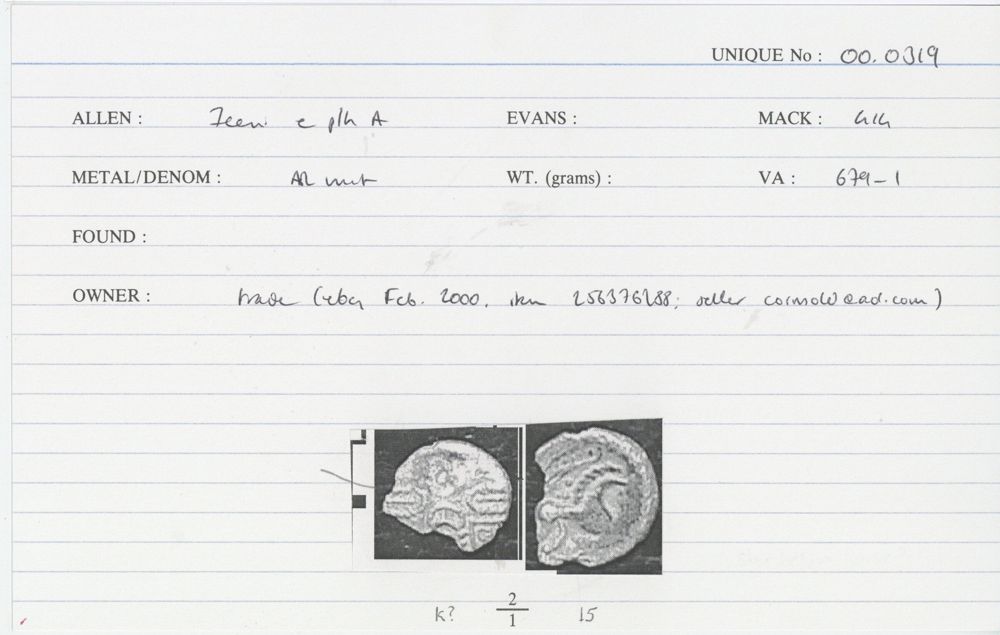 UNIQUE No : 00.0319
ALLEN : Iceni c plh A EVANS : MACK : 414
METAL/DENOM : AR unit WT. (grams) : VA : 679-1
FOUND :
OWNER : trade (ebay Feb. 2000, item 256376288; seller
k? 2/1 15